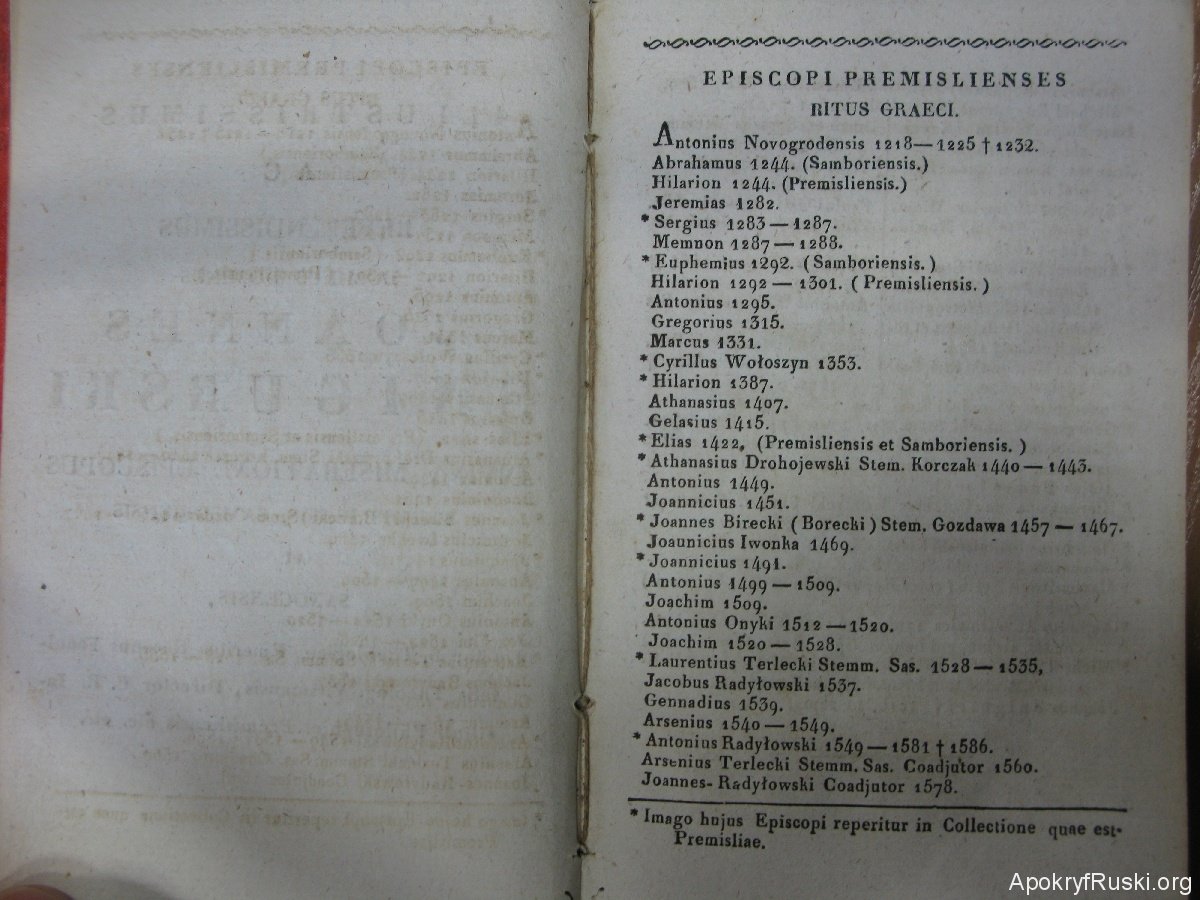 EPISCOPI PREMISLIENSES
RITUS GRAECI.
Antonius Novogrodensis 1218—1225 † 1232.
Abrahamus 1244. (Samboriensis.)
Hilarion 1244. (Premisliensis.)
Jeremias 1282.
* Sergius 1283 — 1287.
Memnon 1287 — 1288.
* Euphemius 1292. (Samboriensis.)
Hilarion 1292 — 1301. (Premisliensis.)
Antonius 1295.
Gregorius 1315.
Marcus 1331.
* Cyrillus Wołoszyn 1353.
* Hilarion 1387.
Athanasius 1407.
Gelasius 1415.
* Elias 1422, (Premisliensis et Samboriensis.)
* Athanasius Drohojewski Stem. Korczak 1440 — 1443.
Antonius 1449.
Joannicius 1451.
* Joannes Birecki (Borecki) Stem. Gozdawa 1457 — 1467.
Joaunicius Iwonka 1469.
* Joannicius 1491.
Antonius 1499 — 1509.
Joachim 1509.
Antonius Onyki 1512 — 1520.
Joachim 1520 — 1528.
* Laurentius Terlecki Stemm. Sas. 1528 — 1535,
Jacobus Radyłowski 1537.
Gennadius 1539.
Arsenius 1540 — 1549.
* Antonius Radyłowski 1549 — 1581 † 1586.
Arsenius Terlecki Stemm. Sas. Coadjutor 1560.
Joannes- Radyłowski Coadjutor 1578.
* Imago hujus Episcopi reperitur in Collectione quae est
Premisliae.
ApokryfRuski.org